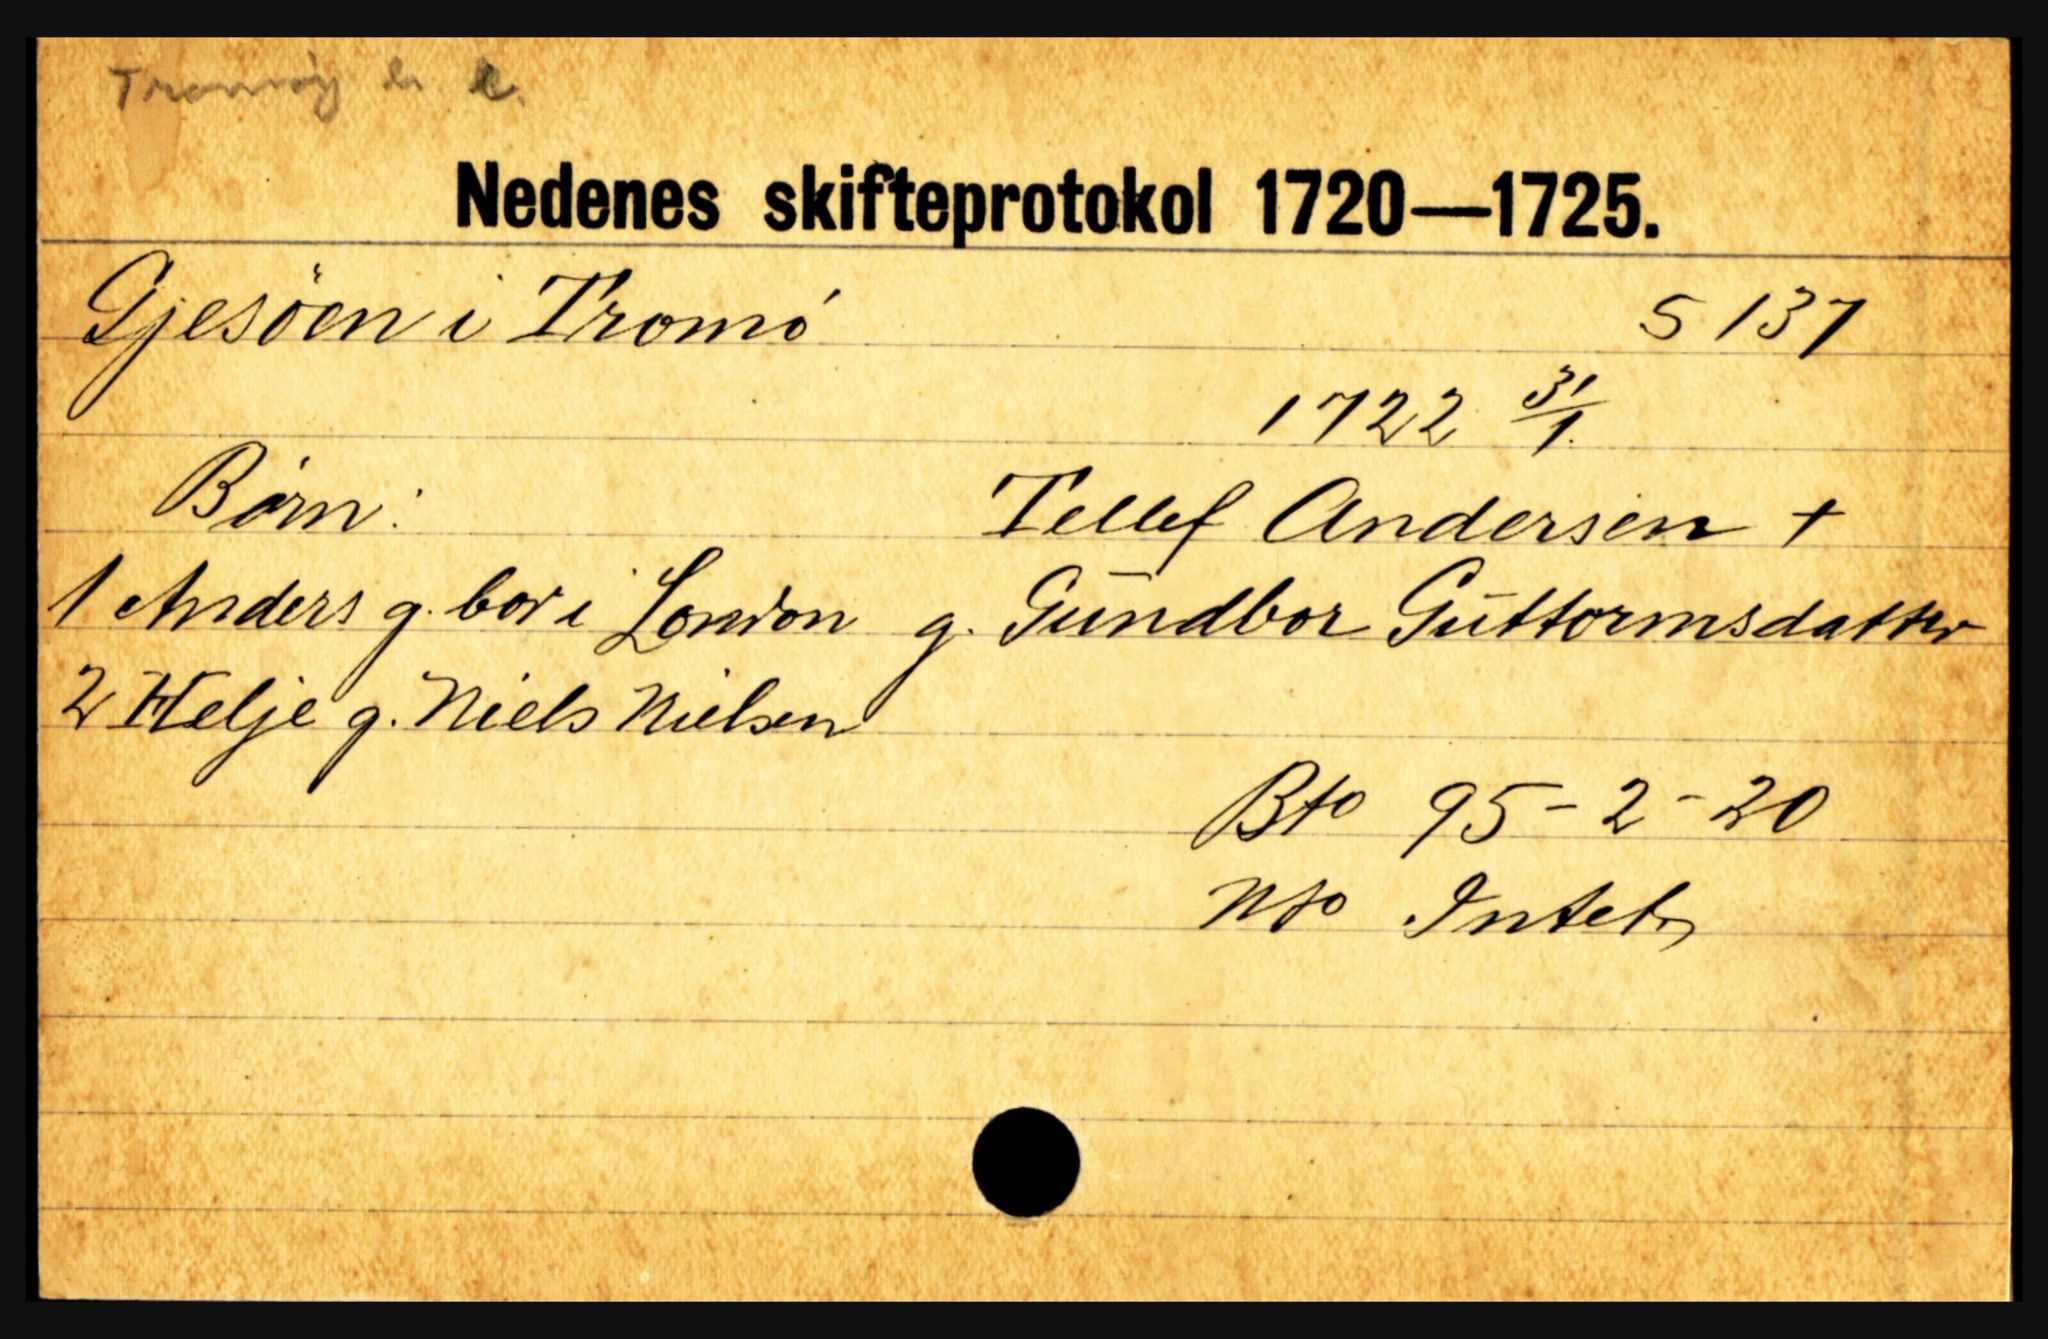 Tromøy
Nedenes skifteprotokol 1720—1725.
Gjesöen i Tromö
S 137
1722 31/1.
Börn:
Tellef Andersen +
1 Anders g. bor i London g. Gundbor Guttormsdatter
2 Helje g. Niels Nielsen
Bto 95-2-20
Nto Intet